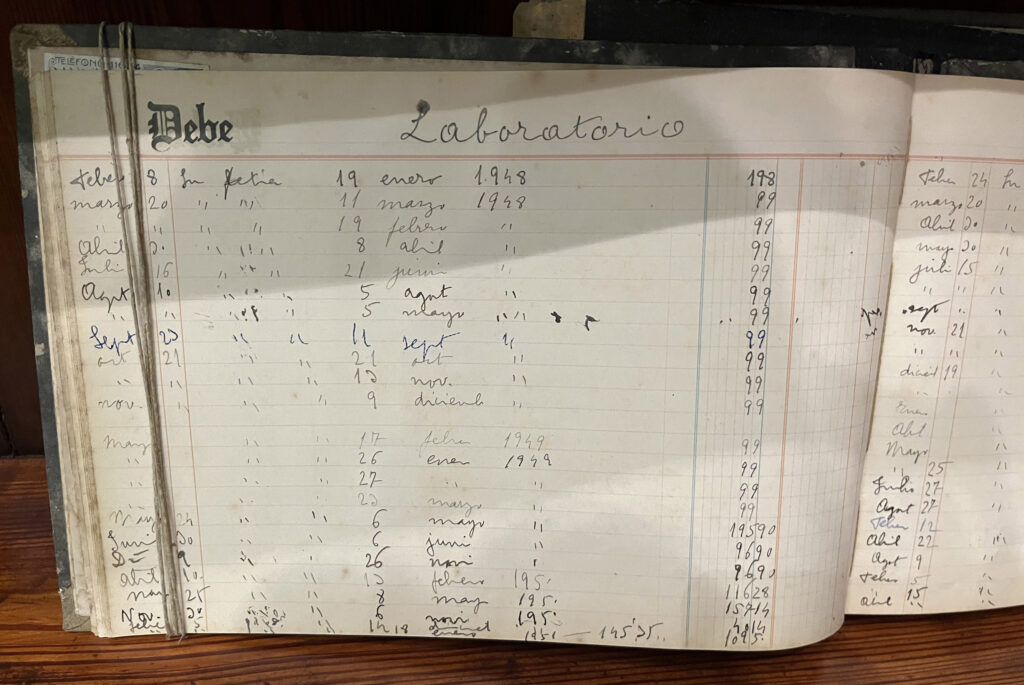 TELÉFONO
Debe Laboratorio
Feber 8 Su fetia 19 enero 1948 198
marzo 20 " " 11 marzo 1948 99
" " " " 19 febrero " 99
Abril 20 " " 8 abril " 99
Juli 16 " " 21 juni " 99
Agot 10 " " 5 agot " 99
" " " " 5 mayo " " 99
Sept 20 " " 11 sept " 99
oct 21 " " 21 oct " 99
" " " " 10 nov. " 99
nov. " " " 9 diciemb " 99
mayo " " 17 feber 1949 99
" " " 26 ener 1949 99
" " " 27 " " 99
" " " 20 marzo " 99
Mayo 24 " " 6 mayo " 19590
Juni 20 " " 6 juni " 9690
9 " " 26 nov " 9690
abril 10 " " 10 febrero 195. 11628
25 " " 8 may 195. 15714
Nov. " 6 nov 195.
enero 195. — 145'35
Feber 24 Su
marzo 20 "
Abril 20 "
mayo 20 "
juli 15 "
" " "
sept " "
nov. 21 "
" " "
diciemb 19 "
Enero "
Abril
Mayo "
" 25 "
Junio 27 "
Agot 27 "
Feber 12
Abril 22 "
Agot 9 "
Febero 5 "
abril 15 "